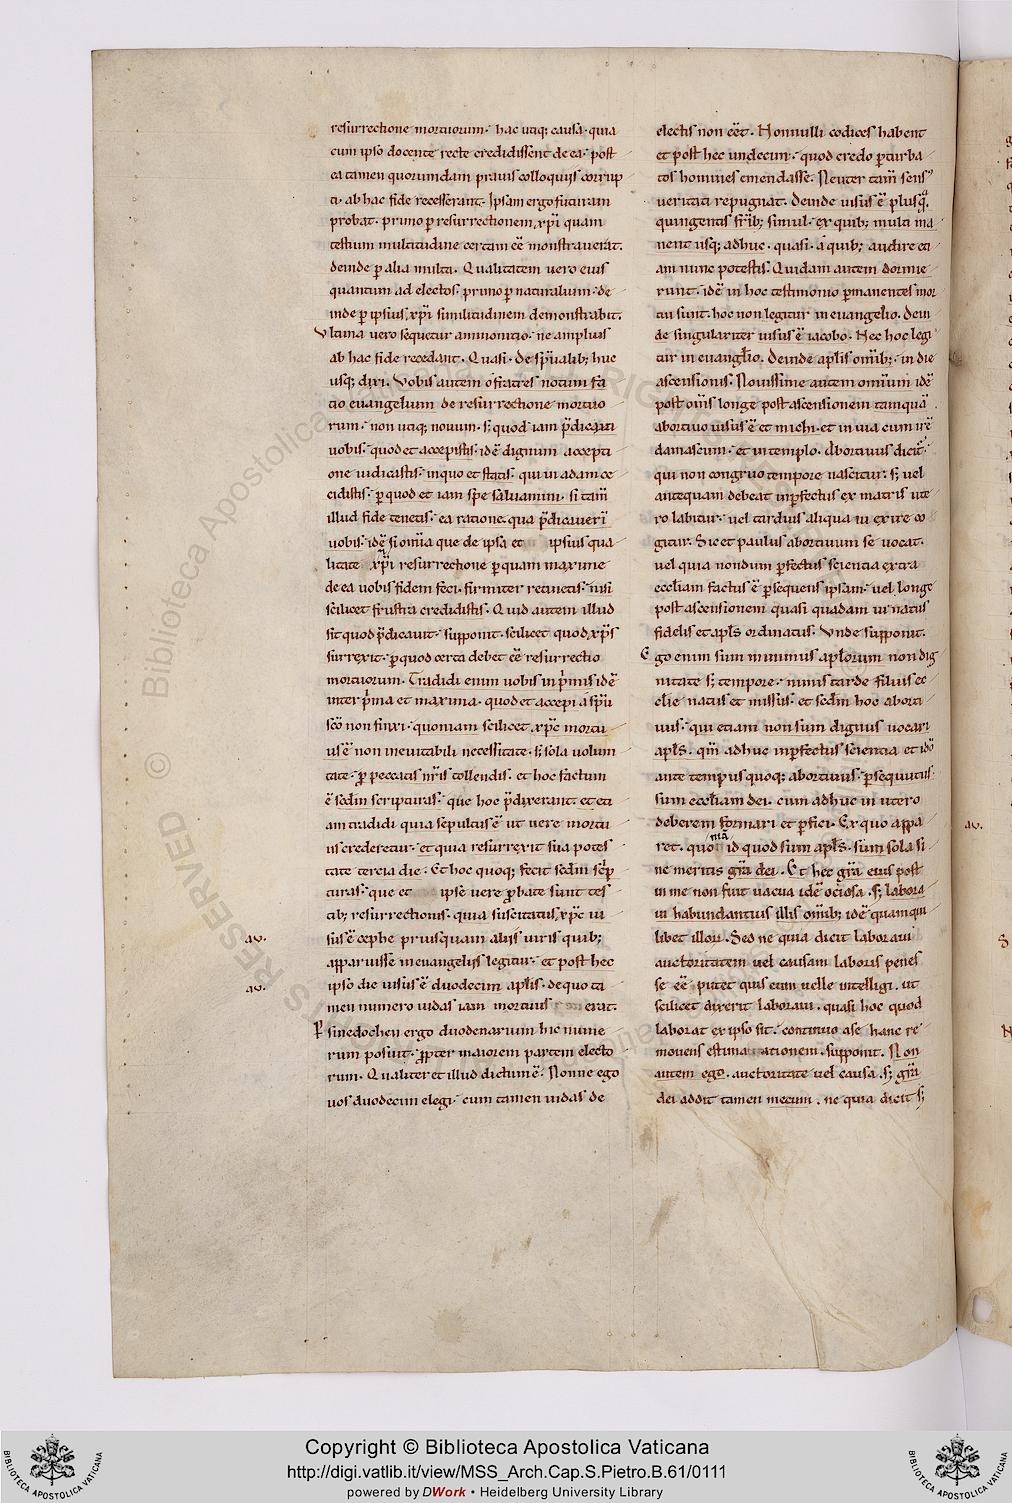 resurrectione mortuorum· hac utiq; causa· quia
cum ipso docente recte credidissent de ea· post
ea tamen quorumdam prauis colloquiis corrup
ti· ab hac fide recesserant· Ipsam ergo futuram
probat· primo ꝑ resurrectionem xp̄i quam
testium multitudine certam eē monstrauerat.
deinde ꝑ alia multa. Qualitatem uero eius
quantum ad electos· primo ꝑ naturalium· de
inde ꝑ ipsius xp̄i similitudinem demonstrabit.
Vltima uero sequetur ammonitio· ne amplius
ab hac fide recedant. Quasi· de sp̄ualib; huc
usq; dixi. Vobis autem o fratres notum fa
cio euangelium de resurrectione mortuo
rum· non utiq; nouum· s; quod iam p̄dicaui
uobis· quod et accepistis· idē dignum accepti
one iudicastis· in quo et statis· qui in adam ce
cidistis· ꝑ quod et iam spe saluamini· si tam̄
illud fide tenetis· ea ratione qua p̄dicauerī
uobis· idē si omīa que de ipsa et ipsius qua
litate xp̄i resurrectione ꝑ quam maxime
de ea uobis fidem feci· firmiter retinetis· nisi
scilicet frustra credidistis. Quid autem illud
sit quod p̄dicauit· supponit· scilicet quod xp̄s
surrexit· ꝑ quod certa debet eē resurrectio
mortuorum. Tradidi enim uobis in p̄mis idē
inter p̄ma et maxima· quod et accepi a sp̄u
sc̄o non finxi· quoniam scilicet xp̄c mortu
us ē non ineuitabili necessitate· s; sola uolun
tate· ꝑ peccatis nr̄is tollendis· et hoc factum
ē sc̄dm scripturas· que hoc p̄dixerant· et eti
am tradidi quia sepultus ē ut uere mortu
us crederetur· et quia resurrexit sua potes
tate tercia die· Et hoc quoq; fecit sc̄dm scrip̄
turas· que et ipse uere ꝓbate sunt tes
tib; resurrectionis· quia suscitatus xp̄c ui
aū. sus ē cephe priusquam aliis uiris quib;
apparuisse in euangeliis legitur· et post hec
aū. ipso die uisus ē duodecim ap̄lis· de quo ta
men numero iudas iam mortuus erat.
Psinedochen ergo duodenarum hic nume
rum posuit· ꝓpter maiorem partem electo
rum. Qualiter et illud dictum ē· Nonne ego
uos duodecim elegi· cum tamen iudas de
electis non eēt. Nonnulli codices habent
et post hec undecim· quod credo ꝑturba
tos homines emendasse. Neuter tam̄ sens᷒
ueritati repugnat. deinde uisus ē plusq̄.
quingentis fr̄ib; simul· ex quib; multi ma
nent usq; adhuc· quasi· a quib; audire eti
am nunc potestis. Quidam autem dormie
runt· idē in hoc testimonio ꝑmanentes mor
tui sunt· hoc non legitur in euangelio. dein
de singulariter uisus ē iacobo. Nec hoc legi
tur in euangłio. Deinde ap̄lis om̄ib; in die
ascensionis. Nouissime autem omium idē
post om̄s longe post ascensionem tamquā
abortiuo uisus ē et michi· et in uia cum irē
damascum· et in templo. Abortiuus dicit̄
qui non congruo tempore nascitur· s; uel
antequam debeat inꝑfectus ex matris ute
ro labitur· uel tardius aliqua ui exire co
gitur. Sic et paulus abortiuum se uocat·
uel quia nondum ꝑfectus scientia extra
eccliam factus ē ꝑsequens ipsam· uel longe
post ascensionem quasi quadam ui natus
fidelis et ap̄ls ordinatus. Vnde supponit.
Ego enim sum minimus ap̄lorum non dig
nitate s; tempore· nimis tarde filius ec
clie natus et missus· et sc̄dm hoc aborti
uus· qui etiam non sum dignus uocari
ap̄ls. qm̄ adhuc inꝑfectus scientia et idō
ante tempus quoq; abortiuus· ꝑsequutus
sum eccliam dei· cum adhuc in utero
deberem formari et ꝑfici. Ex quo appa
ret· quoniā id quod sum ap̄ls· sum sola si
ne meritis gr̄a dei. Et hec gr̄a eius post
in me non fuit uacua idē ociosa· s; labora
ui habundantius illis om̄ib; idē quamqui
libet illorū. Sed ne quia dicit laboraui
auctoritatem uel causam laboris penes
se eē putet quis eum uelle intelligi· ut
scilicet dixerit laboraui· quasi hoc quod
laborat ex ipso sit· continuo a se hanc re
mouens estimationem· supponit. Non
autem ego· auctoritate uel causa· s; gr̄a
dei addit tamen mecum· ne quia dicit s;
aū.
Copyright © Biblioteca Apostolica Vaticana
http://digi.vatlib.it/view/MSS_Arch.Cap.S.Pietro.B.61/0111
powered by DWork • Heidelberg University Library